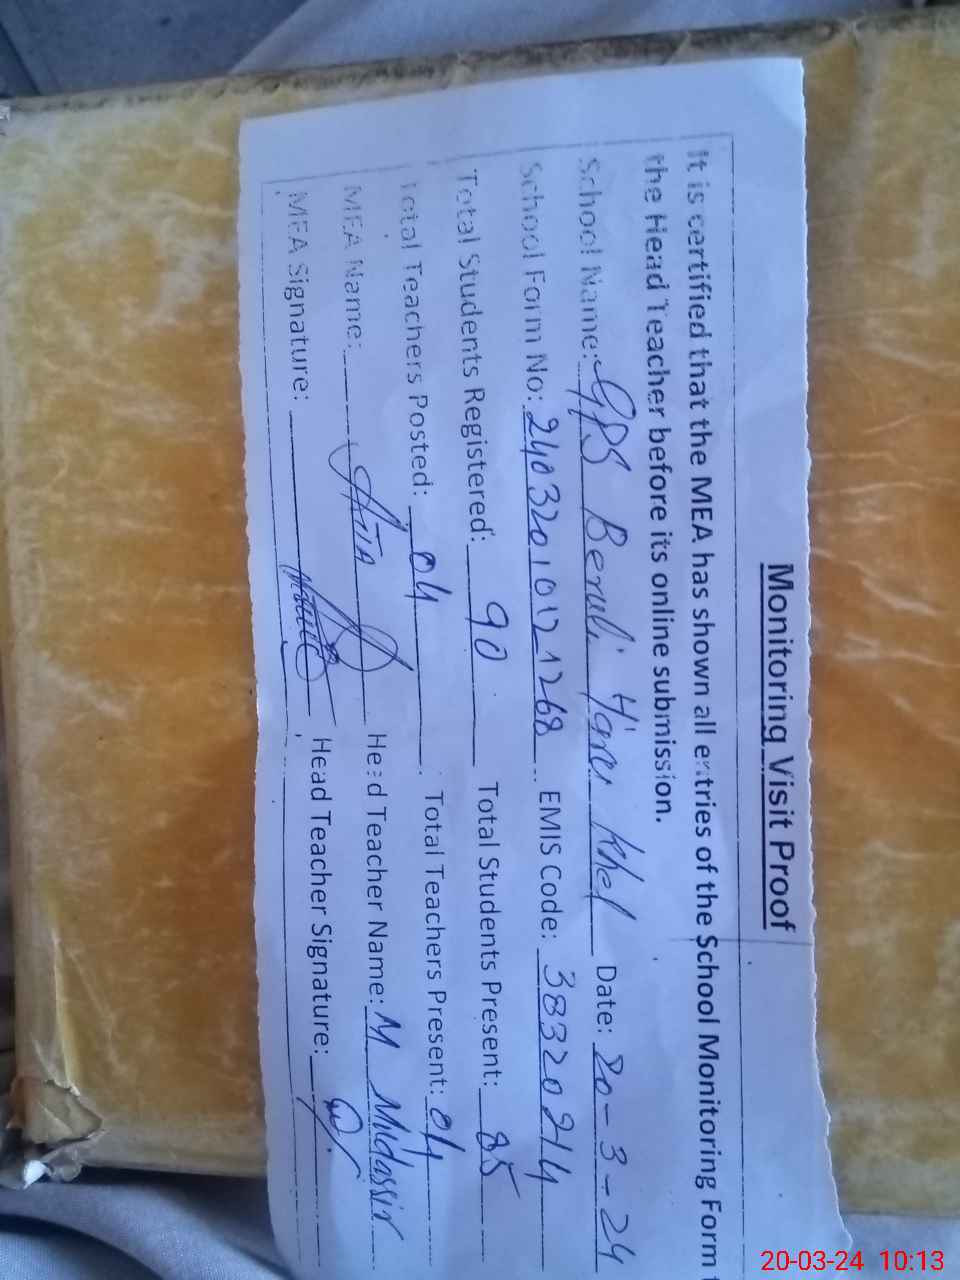 Monitoring Visit Proof
It is certified that the MEA has shown all entries of the School Monitoring Form t
the Head Teacher before its online submission.
School Name: GPS Beruli Hanu Khel Date: 20-3-24
School Form No: 240320101721268 EMIS Code: 38320214
Total Students Registered: 90 Total Students Present: 85
Total Teachers Posted: 04 Total Teachers Present: 04
MEA Name: Head Teacher Name: M Mudassir
MEA Signature: Head Teacher Signature:
20-03-24 10:13